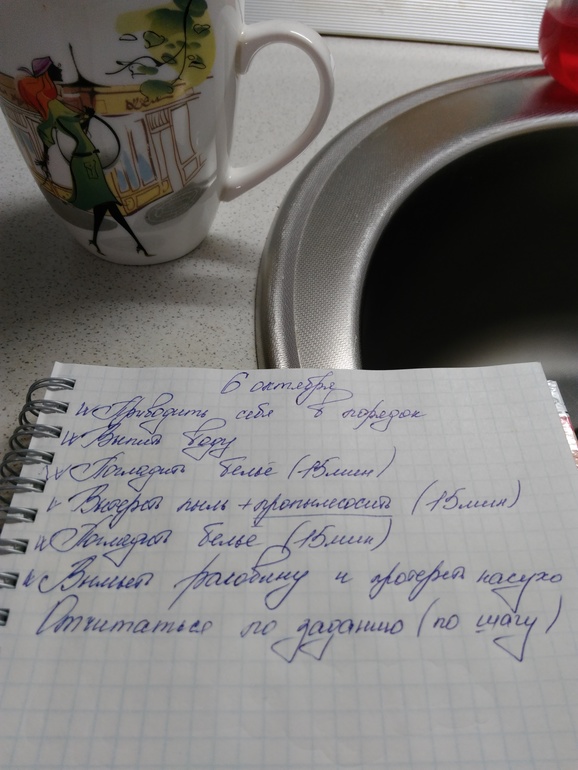 6 октября
Приводить себя в порядок
Выпить воду
Погладить бельё (15мин)
Вытереть пыль + пропылесосить (15мин)
Погладить бельё (15мин)
Вымыть раковину и протереть насухо
Отчитаться по заданию (по шагу)